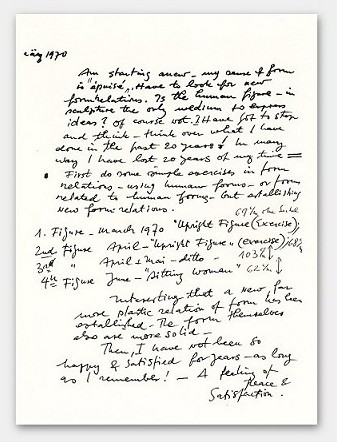 1970
Am starting anew - my sense of form
is "épuisé". Have to look for new
form relations. Is the human figure - in
sculpture the only medium to express
ideas? Of course not. I have got to stop
and think - think over what I have
done in the past 20 years! In many
way I have lost 20 years of my time =
First do some simple exercises in form
relations - using human forms - or forms
related to human forms - but establishing
new form relations.
1. Figure - March 1970 "Upright Figure (Exercise);
2nd Figure April - "Upright Figure" (exercise)
3rd " April & Mai - ditto -
4th Figure June - "Sitting Woman"
Interesting that a new, far
more plastic relation of form has been
established - The form themselves
also are more solid -
Then, I have not been so
happy & satisfied for years - as long
as I remember! - A feeling of
Peace &
Satisfaction.